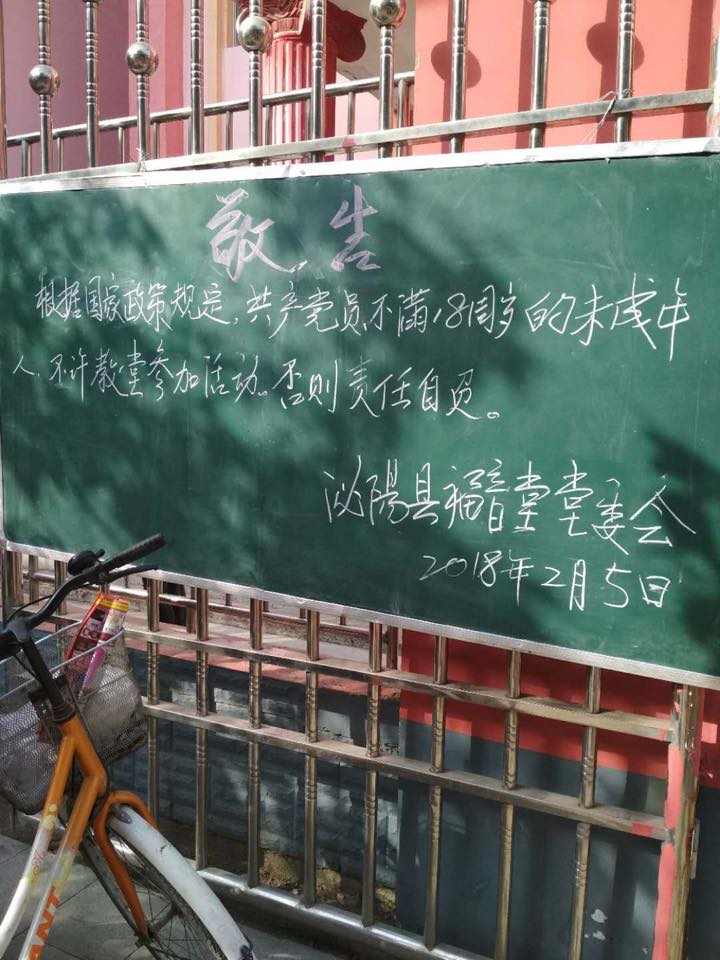 敬告
根据国家政策规定,共产党员不满18周岁的未成年
人、不许教堂参加活动。否则责任自负。
泌陽县福音堂堂委会
2018年2月5日
ANT